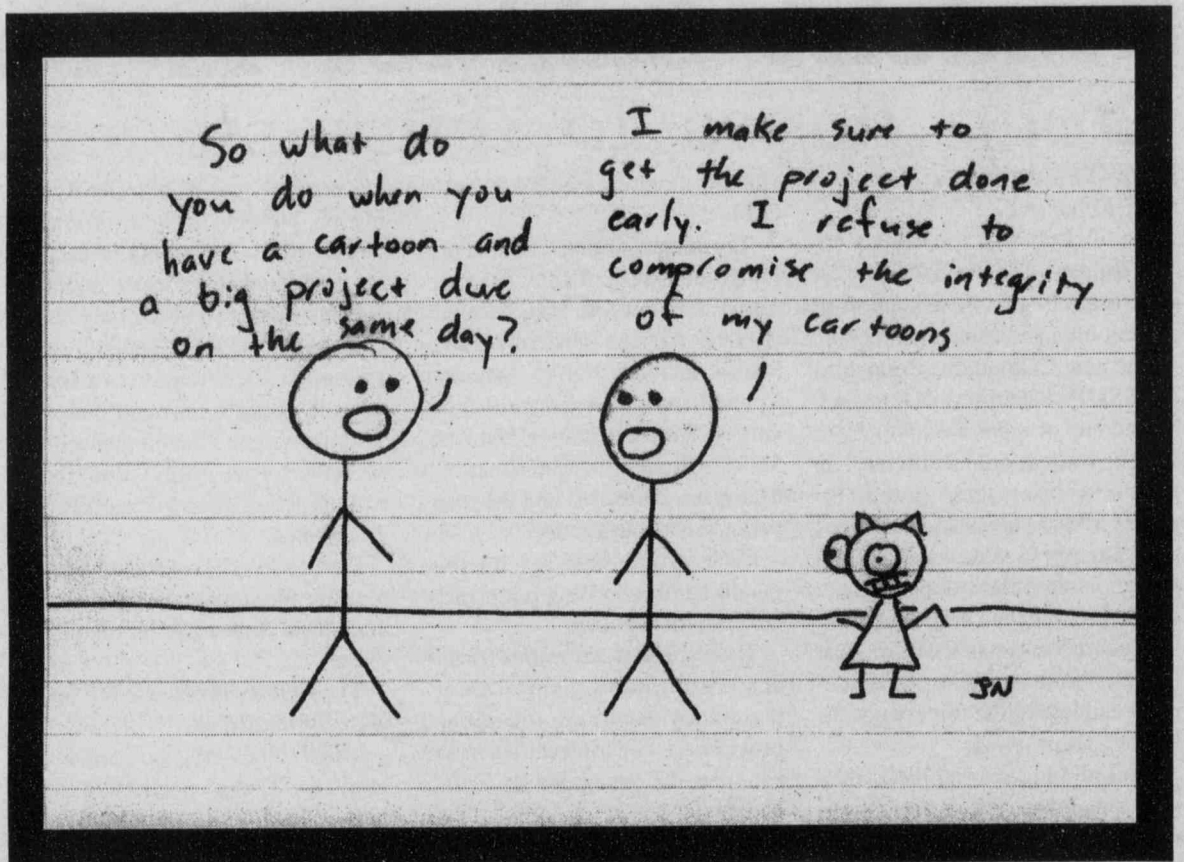 So what do
you do when you
have a cartoon and
a big project due
on the same day?
I make sure to
get the project done
early. I refuse to
compromise the integrity
of my cartoons
JN